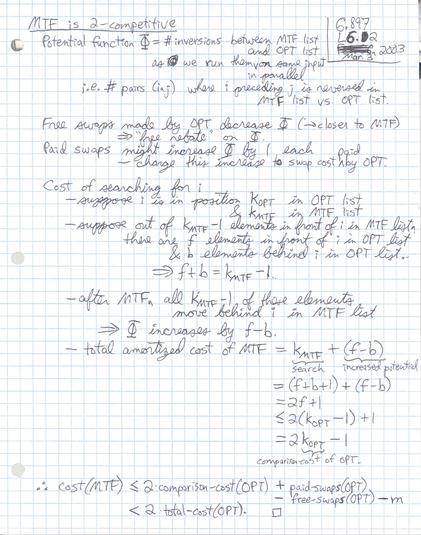 MTF is 2-competitive
6.897
L6.2
2003
Potential function Φ = # inversions between MTF list
and OPT list
as we run them on same input
in parallel
i.e. # pairs (i,j) where i preceding j is reversed in
MTF list vs. OPT list.
Free swaps made by OPT decrease Φ (→closer to MTF)
⇒ "free rebate" on Φ.
Paid swaps might increase Φ by 1 each paid
- charge this increase to swap cost by OPT.
Cost of searching for i
- suppose i is in position k_OPT in OPT list
& k_MTF in MTF list
- suppose out of k_MTF - 1 elements in front of i in MTF list,
there are f elements in front of i in OPT list
& b elements behind i in OPT list.
⇒ f+b = k_MTF - 1.
- after MTF, all k_MTF - 1 of these elements
move behind i in MTF list
⇒ Φ increases by f-b.
- total amortized cost of MTF = k_MTF + (f-b)
search increased potential
= (f+b+1) + (f-b)
= 2f+1
≤ 2(k_OPT - 1) + 1
= 2k_OPT - 1
comparison cost of OPT.
∴ cost(MTF) ≤ 2·comparison-cost(OPT) + paid-swaps(OPT)
- free-swaps(OPT) - m
< 2·total-cost(OPT). □